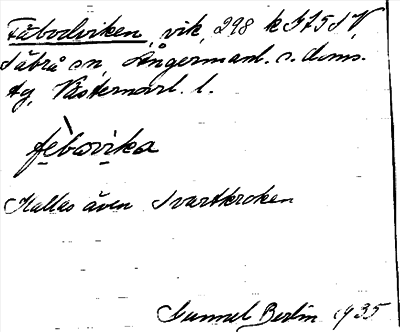 Fäbodviken, vik, 298 k S75 S V,
Säbrå sn, Ångermanl. s. doms.
tg, Västernorrl. l.
fèbovika
Kallas även Svartkroken
Gunnel Berlin 1935